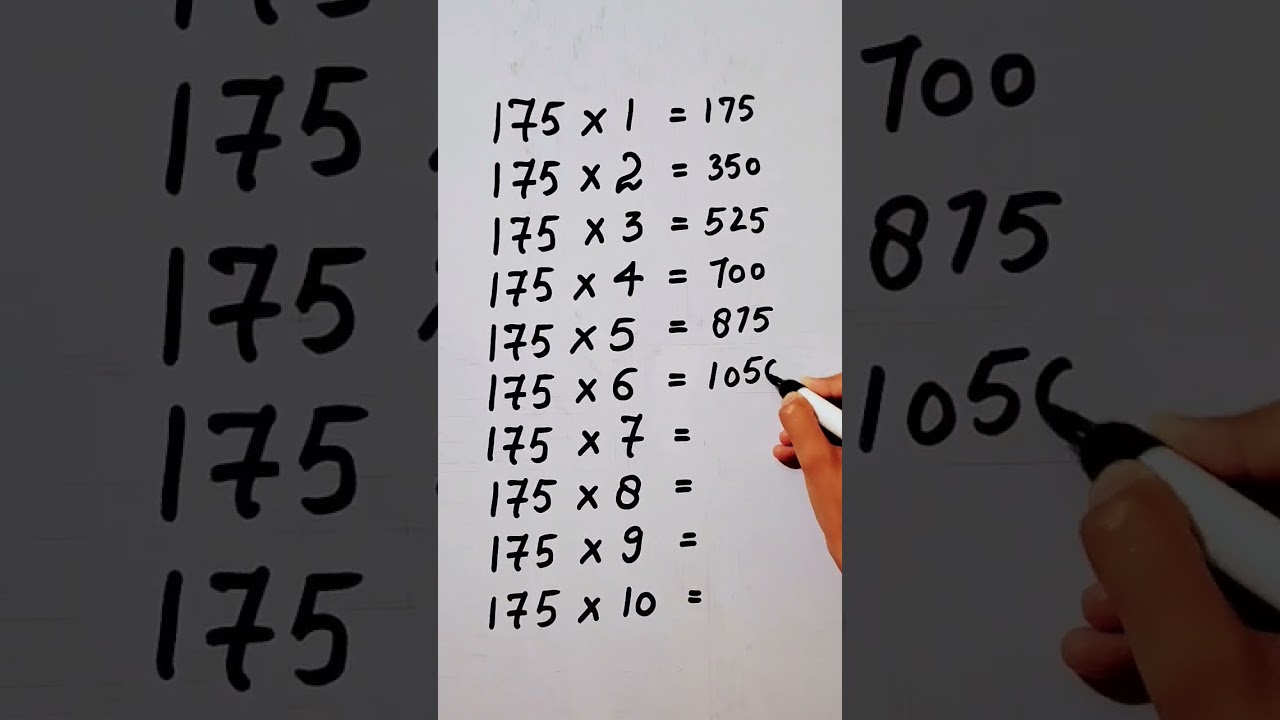 175 x 1 = 175
175 x 2 = 350
175 x 3 = 525
175 x 4 = 700
175 x 5 = 875
175 x 6 = 105
175 x 7 =
175 x 8 =
175 x 9 =
175 x 10 =